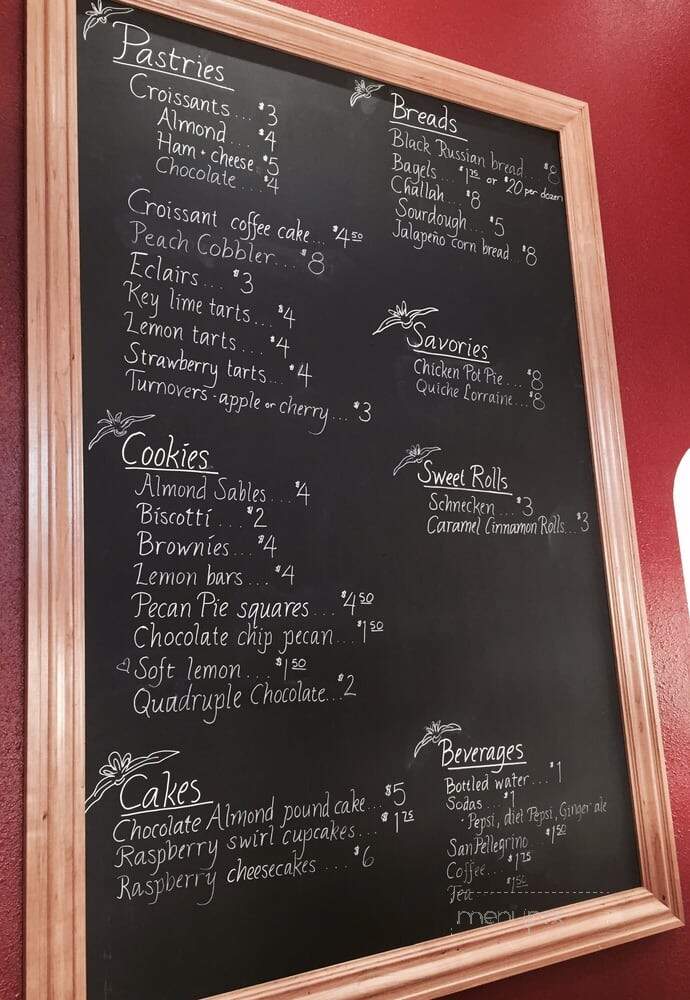 Pastries
Croissants... $3
Almond... $4
Ham + cheese $5
Chocolate... $4
Croissant coffee cake... $4.50
Peach Cobbler... $8
Eclairs... $3
Key lime tarts... $4
Lemon tarts... $4
Strawberry tarts... $4
Turnovers - apple or cherry... $3
Cookies
Almond Sables... $4
Biscotti... $2
Brownies... $4
Lemon bars... $4
Pecan Pie squares... $4.50
Chocolate chip pecan... $1.50
Soft lemon... $1.50
Quadruple Chocolate... $2
Cakes
Chocolate Almond pound cake... $5
Raspberry swirl cupcakes... $1.75
Raspberry cheesecakes.... $6
Breads
Black Russian bread... $8
Bagels... $1.25 or $20 per dozen
Challah... $8
Sourdough... $5
Jalapeño corn bread... $8
Savories
Chicken Pot Pie.... $8
Quiche Lorraine... $8
Sweet Rolls
Schnecken... $3
Caramel Cinnamon Rolls... $3
Beverages
Bottled water... $1
Sodas... $1
· Pepsi, diet Pepsi, Ginger ale
San Pellegrino... $1.50
Coffee... $1.75
Tea... $1.50
menupix